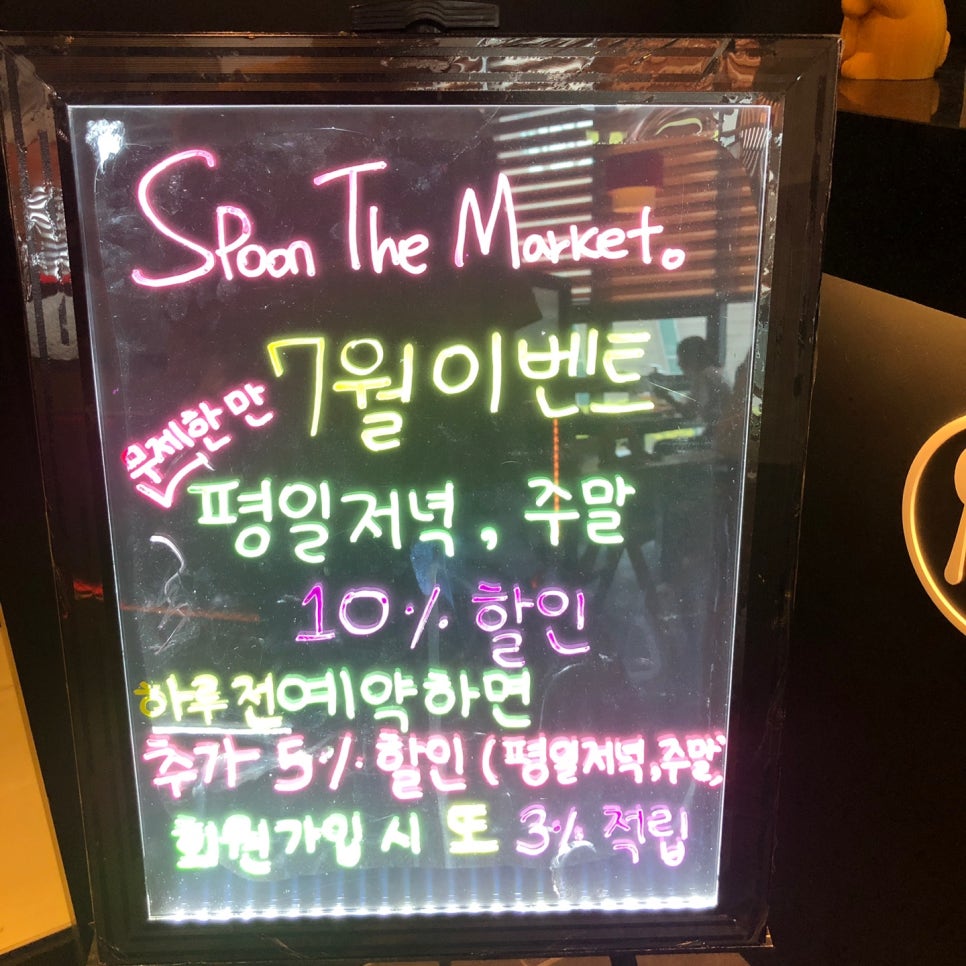 Spoon The Market.
7월 이벤트
무제한만
평일저녁, 주말
10% 할인
하루 전 예약하면
추가 5% 할인 (평일저녁, 주말)
회원가입 시 또 3% 적립